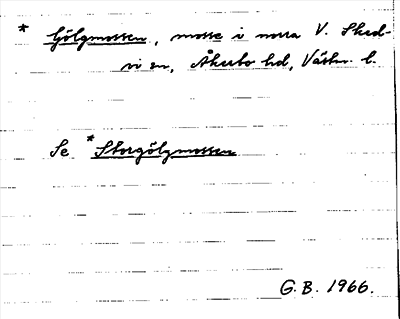 * Gölgmossen, mosse i norra V. Sked-
vi sn, Åkerbo hd, Västm. l.
Se *Storgölgmossen
G.B. 1966.